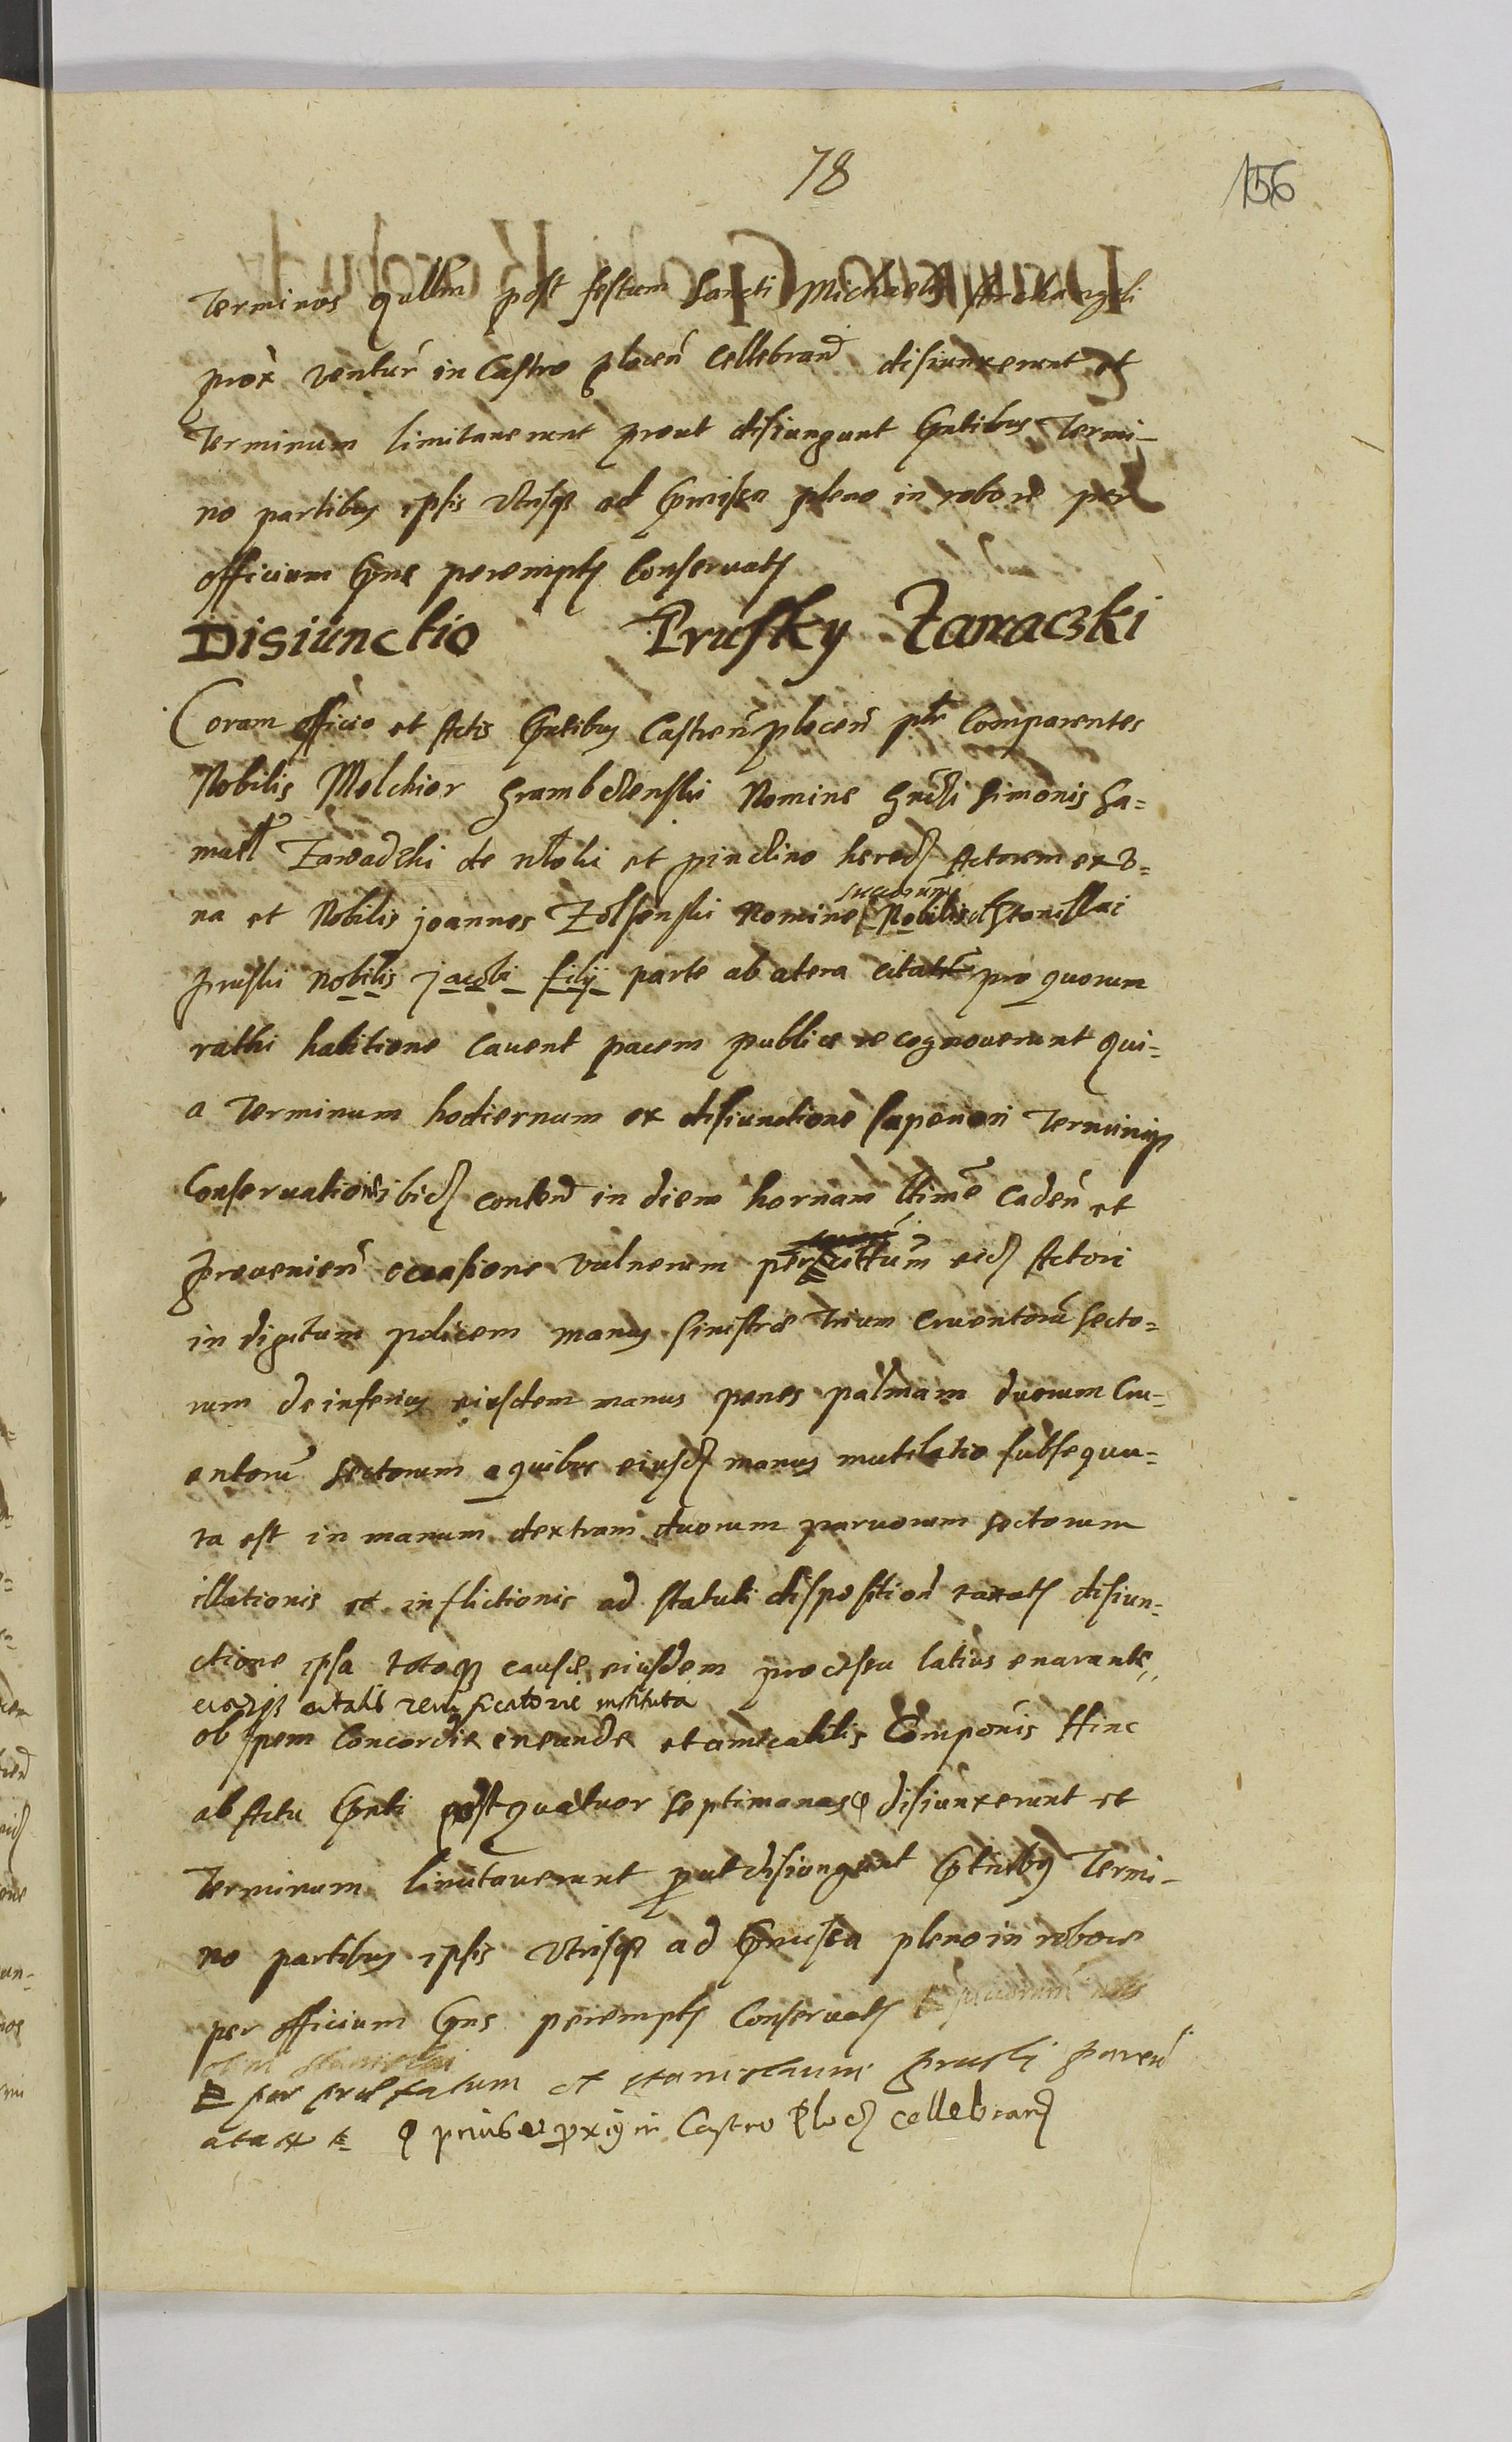 78
156
Terminos quellm post festum Sancti Michaelis Archangeli
prox ventur in Castro plocen Cellebrand disiunxerunt et
Terminum limitaverunt prout disiungunt pntibus Termi-
no partibus ipsis utrisq ad pmissa pleno in robore per
officium pns perempt Conservat
Disiunctio Prusky Zawaczki
Coram officio et Actis pntibus Castren plocen ptr Comparentes
Nobilis Melchior Nomine Simonis
Zawadzki de et pinclino hered Actorem ex v-
na et Nobilis joannes Zolsenski Nomine Nobilis Stanislai
pruski Nobilis jacobi filij parte ab atera citat pro quorum
rathi habitione cavent pacem publice recognoverunt Qui-
a Terminum hodiernum ex disiunctione superiori Termini
Conservationis ibid content in diem hornam ltime caden et
provenien occasione vulnerum eid Actori
in digitum policem manus sinistre trium cruentoru secto-
rum de inferius eiusdem manus penes palmam duorum Cru-
entoru sectorum a quibus eiusd manus mutilatio subsequu-
ta est in manum dextram duorum parvorum sectorum
illationis et inflictionis ad statuti disposition taxat disiun-
ctione ipsa totoq cause eiusdem processu latius enarante
citatis instituta
ob spem Concordie eneunde et amicabilis Componis Hinc
ab Actu pnti post quatuor septimanas disiunxerunt et
Terminum limitaverunt put disiungunt pntibus Termi-
no partibus ipsis utrisq ad pmissa pleno in robore
per officium pns perempt Conservat
per prefatum et stanislaum pruski
in Castro Ploc cellebrand